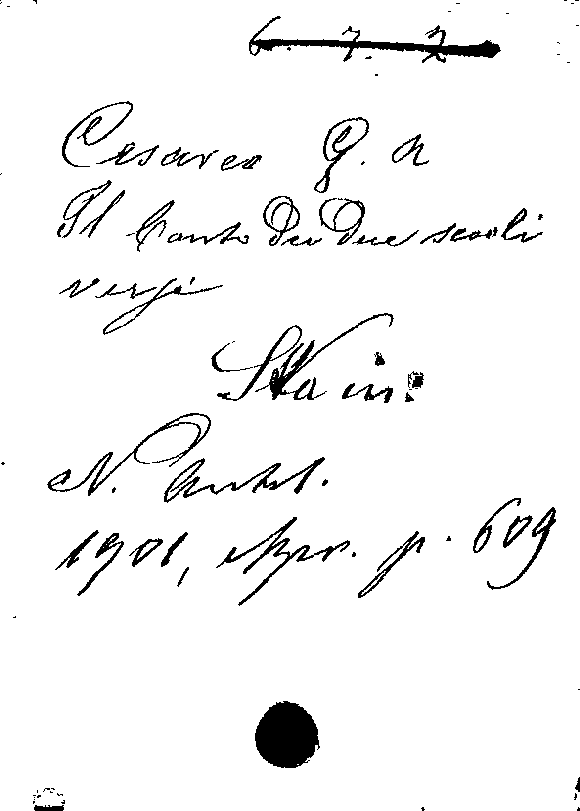 6. 7. 2
Cesareo G. A
Il Canto dei due secoli
versi
N. Antol.
1901, Apr. p. 609